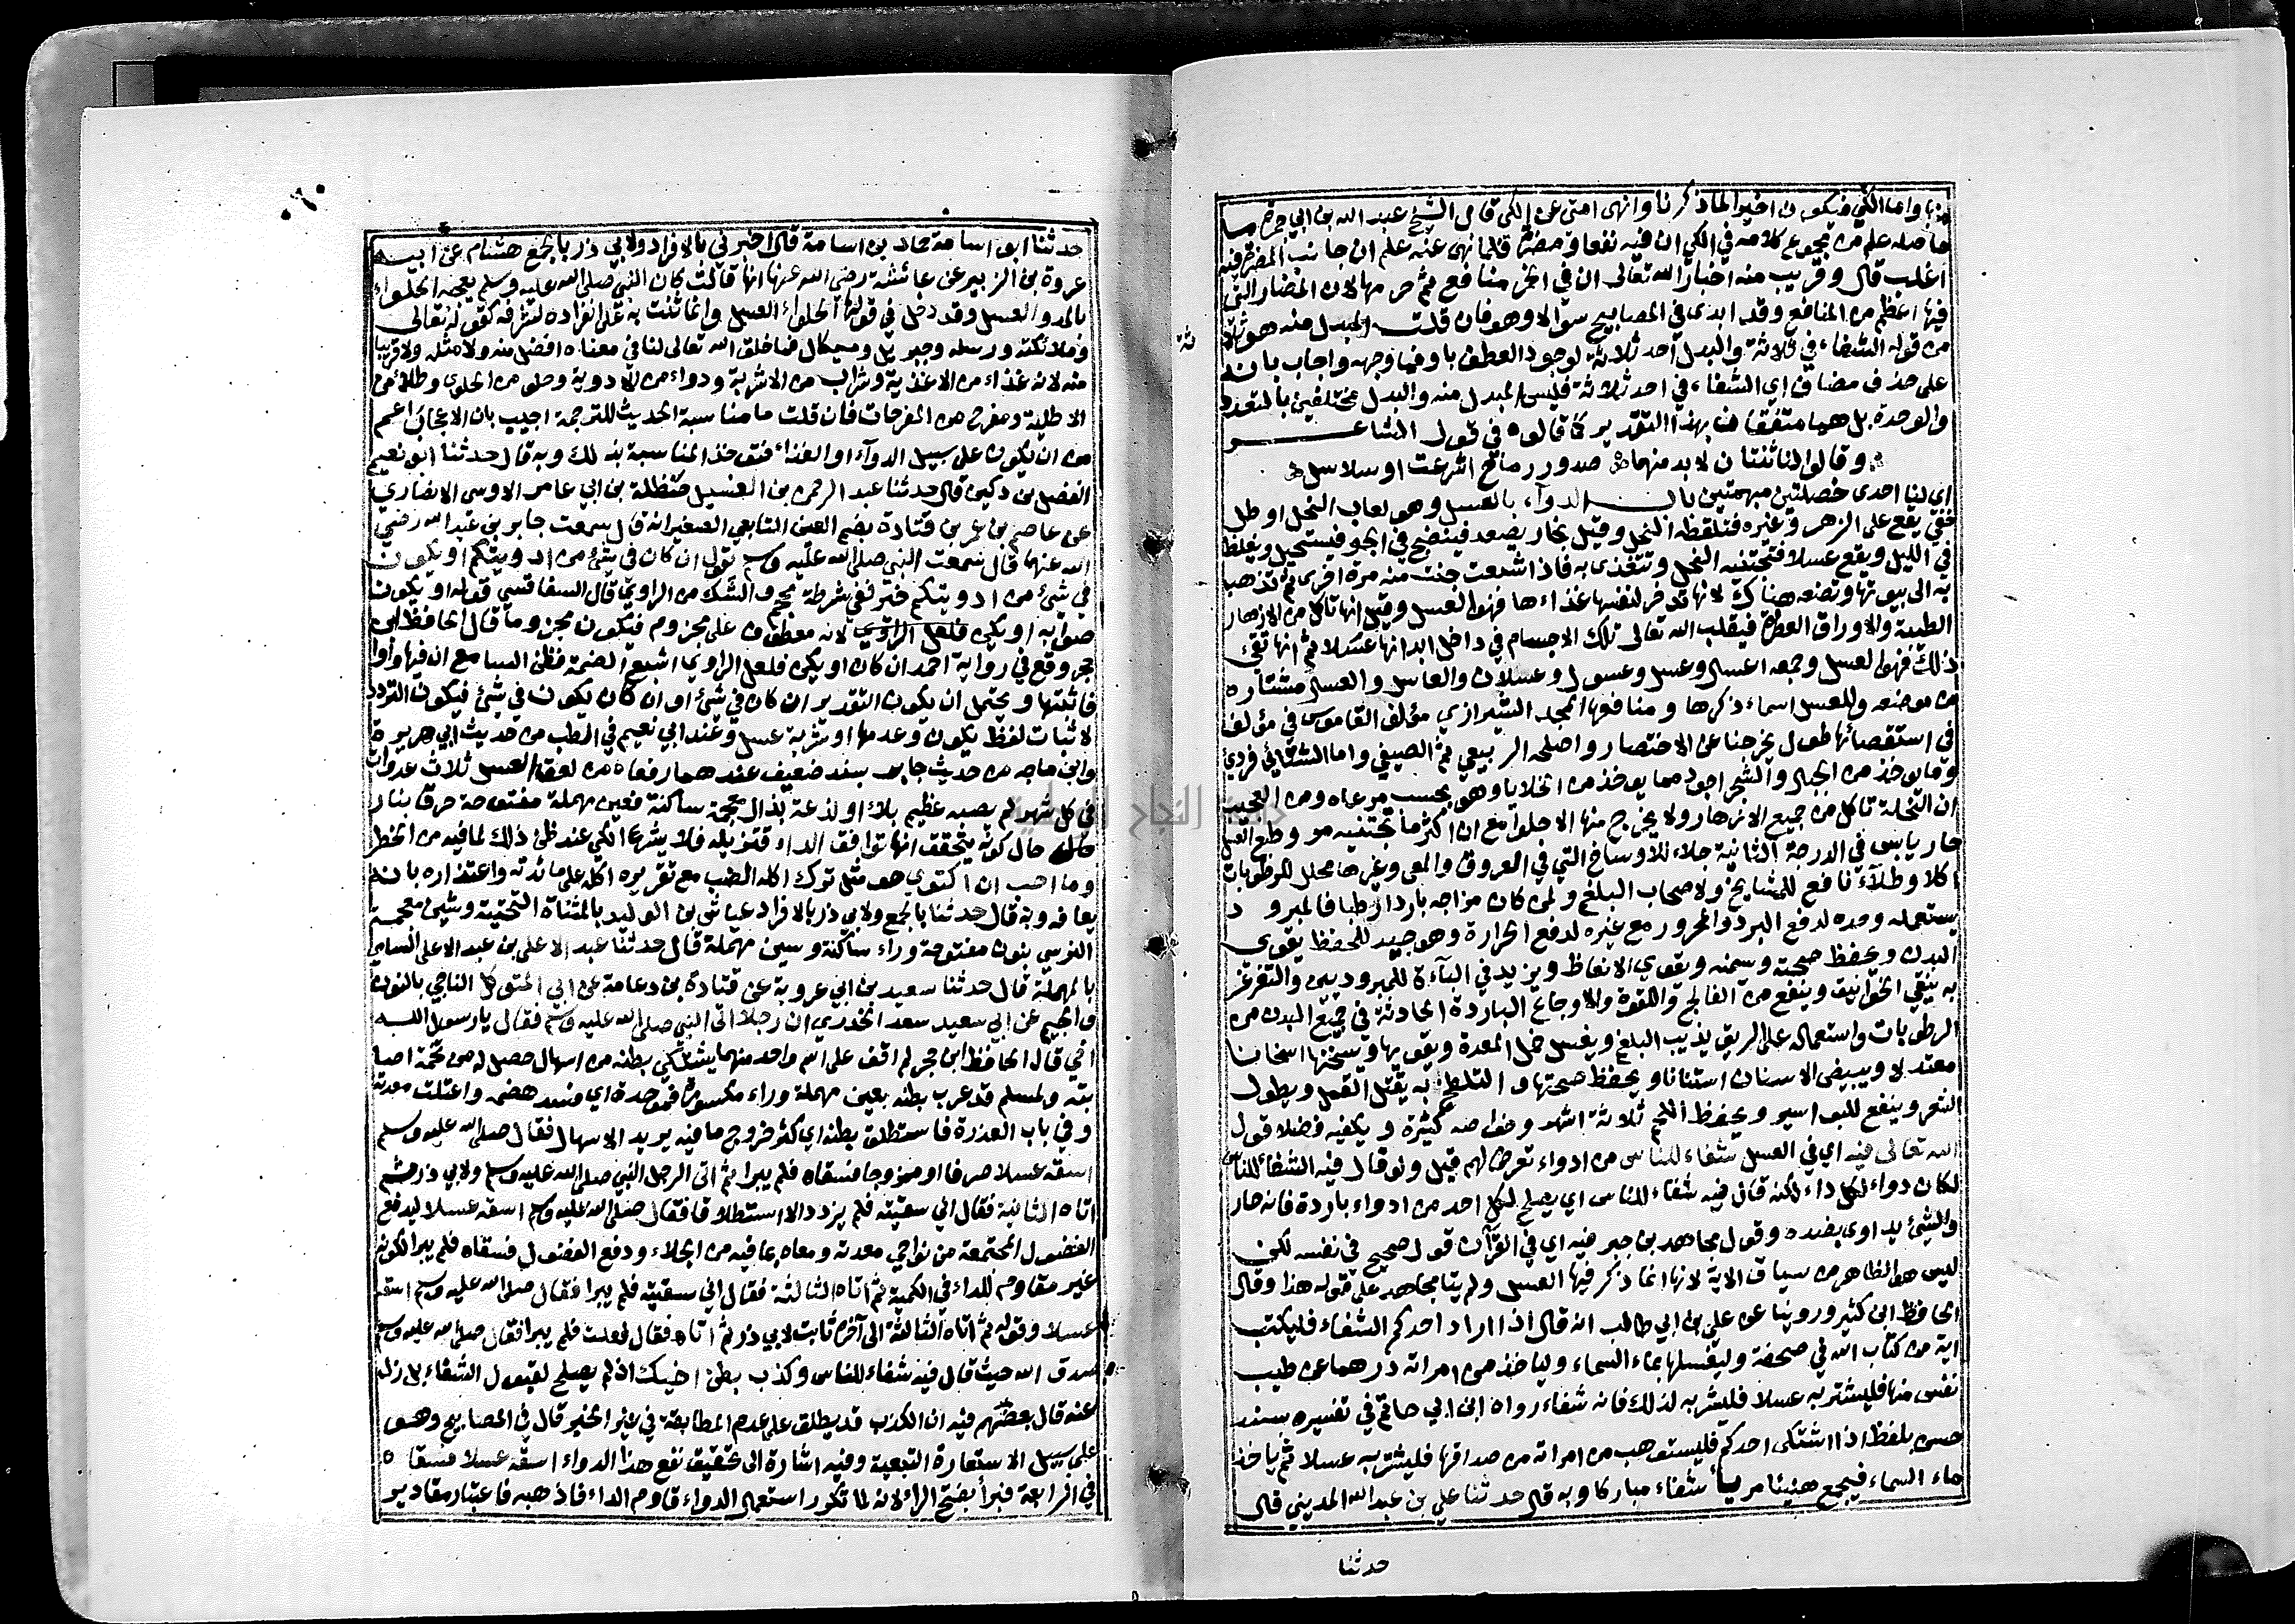 منها واما الكي فيكون اخيرا لما ذكرنا وانهى امتي عن الكي قال الشيخ عبد الله بن ابي جمرة ما
حاصله علم من مجموع كلامه في الكي ان فيه نفعا ومضرة فلما نهى عنه علم ان جانب المضرة فيه
اغلب قال وقريب منه اخبار الله تعالى ان في الخمر منافع ثم حرمها لان المضار التي
فيها اعظم من المنافع وقد ابدى في المصابيح سوالا وهو فان قلت المبدل منه هو ثلاثة
من قوله الشفاء في ثلاثة والبدل احد ثلاثة لوجود العطف باو فما وجهه واجاب بانه
على حذف مضاف اي الشفاء في احد ثلاثة فليس المبدل منه والبدل مختلفين بالتعدد
والوحدة بل هما متفقان بهذا التقدير كما قالوه في قول الشاعر
وقالوا لنا ثنتان لا بد منهما صدور رماح اشرعت او سلاسل
اي لنا احدى خصلتين مبهمتين باب الدواء بالعسل وهو لعاب النحل او طل
خفي يقع على الزهر وغيره فتلقطه النحل وقيل بخار يصعد فينضج في الجو فيستحيل ويغلظ
في الليل ويقع عسلا فتجتنيه النحل وتتغذى به فاذا شبعت جنت منه مرة اخرى ثم تذهب
به الى بيوتها وتضعه هناك لانها تدخر لنفسها غذاءها فهو العسل وقيل انها تاكل من الازهار
الطيبة والاوراق العطرة فيقلب الله تعالى تلك الاجسام في داخل ابدانها عسلا ثم انها تقيء
ذلك فهو العسل وجمعه اعسال وعسل وعسول وعسلان والعاسل والعسال مشتاره
من موضعه وللعسل اسماء ذكرها ومنافعها المجد الشيرازي مؤلف القاموس في مؤلف
في استقصائها طول يخرجنا عن الاختصار واصلحه الربيعي ثم الصيفي واما الشتائي فردي
وما يوخذ من الجبال والشجر اجود مما يوخذ من الخلايا وهو بحسب مرعاه ومن العجيب
ان النحلة تاكل من جميع الازهار ولا يخرج منها الا حلوا مع ان اكثر ما تجتنيه مر وطبع العسل
حار يابس في الدرجة الثانية جلاء للاوساخ التي في العروق والمعى وغيرها محلل للرطوبات
اكلا وطلاء نافع للمشايخ ولاصحاب البلغم ولمن كان مزاجه باردا رطبا فالمبرود
يستعمله وحده لدفع البرد والمحرور مع غيره لدفع الحرارة وهو جيد للحفظ يقوي
البدن ويحفظ صحته وسمنه ويقوي الانعاظ ويزيد في الباءة للمبرودين والتغرغر
به ينقي الخوانيق وينفع من الفالج واللقوة والاوجاع الباردة الحادثة في جميع البدن من
الرطوبات واستعماله على الريق يذيب البلغم ويغسل خمل المعدة ويقويها ويسخنها اسخانا
معتدلا ويبيض الاسنان استنانا ويحفظ صحتها والتلطخ به يقتل القمل ويطول
الشعر وينفع للبواسير ويحفظ اللحم ثلاثة اشهر وخواصه كثيرة ويكفيه فضلا قول
الله تعالى فيه اي في العسل شفاء للناس من ادواء تعرض لهم قيل ولو قال فيه الشفاء للناس
لكان دواء لكل داء لكنه قال فيه شفاء للناس اي يصلح لكل احد من ادواء باردة فانه حار
والشيء يداوى بضده وقول مجاهد بن جبر فيه اي في القرآن قول صحيح في نفسه لكن
ليس هو الظاهر من سياق الاية لانها انما ذكر فيها العسل ولم يتابع مجاهد على قوله هذا وقال
الحافظ ابن كثير وروينا عن علي بن ابي طالب انه قال اذا اراد احدكم الشفاء فليكتب
اية من كتاب الله في صحفة وليغسلها بماء السماء ولياخذ من امراته درهما عن طيب
نفس منها فليشتر به عسلا فليشربه لذلك فانه شفاء رواه ابن ابي حاتم في تفسيره بسند
حسن بلفظ اذا اشتكى احدكم فليستوهب من امراته من صداقها فليشتر به عسلا ثم ياخذ
ماء السماء فيجمع هنيئا مريئا شفاء مباركا وبه قال حدثنا علي بن عبد الله المديني قال
حدثنا
حدثنا ابو اسامة حماد بن اسامة قال اخبرني بالافراد ولابي ذر بالجمع هشام عن ابيه
عروة بن الزبير عن عائشة رضي الله عنها انها قالت كان النبي صلى الله عليه وسلم يعجبه الحلواء
بالمد والعسل وقد دخل في قولها الحلواء العسل وانما ثنت به على انفراده لشرفه كقوله تعالى
وملائكته ورسله وجبريل وميكال فما خلق الله تعالى لنا في معناه افضل منه ولا مثله ولا قريبا
منه لانه غذاء من الاغذية وشراب من الاشربة ودواء من الادوية وحلو من الحلوى وطلاء من
الاطلية ومفرح من المفرحات فان قلت ما مناسبة الحديث للترجمة اجيب بان الاعجاب اعم
من ان يكون على سبيل الدواء او الغذاء فتوخذ المناسبة بذلك وبه قال حدثنا ابو نعيم
الفضل بن دكين قال حدثنا عبد الرحمن بن الغسيل حنظلة بن ابي عامر الاوسي الانصاري
عن عاصم بن عمر بن قتادة بضم العين التابعي الصغير انه قال سمعت جابر بن عبد الله رضي
الله عنهما قال سمعت النبي صلى الله عليه وسلم يقول ان كان في شيء من ادويتكم او يكون
في شيء من ادويتكم خير ففي شرطة محجم والشك من الراوي قال السفاقسي قوله او يكون
صوابه او يكن فلعل الراوي لانه معطوف على مجزوم فيكون مجزوما قال الحافظ ابن
حجر وقع في رواية احمد ان كان او يكن فلعل الراوي اشبع الضمة فظن السامع ان فيها واوا
فاثبتها ويحتمل ان يكون التقدير ان كان في شيء او ان كان يكون في شيء فيكون التردد
لاثبات لفظ يكون وعدمها او شربة عسل وعند ابي نعيم في الطب من حديث ابي هريرة
وابن ماجه من حديث جابر بسند ضعيف عندهما رفعاه من لعق العسل ثلاث غدوات
في كل شهر لم يصبه عظيم بلاء او لذعة بذال معجمة ساكنة فعين مهملة مفتوحة حرق بنار
حال كونه يتحقق انها توافق الداء فتزيله فلا يشرع الكي عند ظن ذلك لما فيه من الخطر
وما احب ان اكتوي هو مثل تركه اكله الضب مع تقريره اكله على مائدته واعتذاره بانه
يعافه وبه قال حدثنا بالجمع ولابي ذر بالافراد عياش بن الوليد بالمثناة التحتية وشين معجمة
النرسي بنون مفتوحة وراء ساكنة وسين مهملة قال حدثنا عبد الاعلى بن عبد الاعلى السامي
بالمهملة قال حدثنا سعيد بن ابي عروبة عن قتادة بن دعامة عن ابي المتوكل الناجي بالنون
والجيم عن ابي سعيد سعد الخدري ان رجلا اتى النبي صلى الله عليه وسلم فقال يا رسول الله
اخي قال الحافظ ابن حجر لم اقف على اسم واحد منهما يشتكي بطنه من اسهال حصل له من تخمة اصا
بته ولمسلم قد عرب بطنه بعين مهملة وراء مكسورة فموحدة اي فسد هضمه واعتلت معدته
وفي باب العذرة فاستطلق بطنه اي كثر خروج ما فيه يريد الاسهال فقال صلى الله عليه وسلم
اسقه عسلا صرفا او ممزوجا فسقاه فلم يبرا ثم اتى الرجل النبي صلى الله عليه وسلم ولابي ذر ثم
اتاه الثانية فقال اني سقيته فلم يزدد الا استطلاقا فقال صلى الله عليه وسلم اسقه عسلا ليدفع
الفضول المجتمعة من نواحي معدته ومعاه بما فيه من الجلاء ودفع الفضول فسقاه فلم يبرا لكونه
غير مقاوم للداء في الكمية ثم اتاه الثالثة فقال اني سقيته فلم يبرا فقال صلى الله عليه وسلم اسقه
عسلا وقوله ثم اتاه الثالثة الى آخره ثابت لابي ذر ثم اتاه فقال فعلت فلم يبرا فقال صلى الله عليه وسلم
صدق الله حيث قال فيه شفاء للناس وكذب بطن اخيك اذ لم يصلح لقبول الشفاء بل زل
عنه قال بعضهم فيه ان الكذب قد يطلق على عدم المطابقة في غير الخبر قال في المصابيح وهو
على سبيل الاستعارة التبعية وفيه اشارة الى تحقيق نفع هذا الدواء اسقه عسلا فسقاه
في الرابعة فبرأ بفتح الراء لانه لما تكرر استعمال الدواء قاوم الداء فاذهبه فاعتبار مقادير